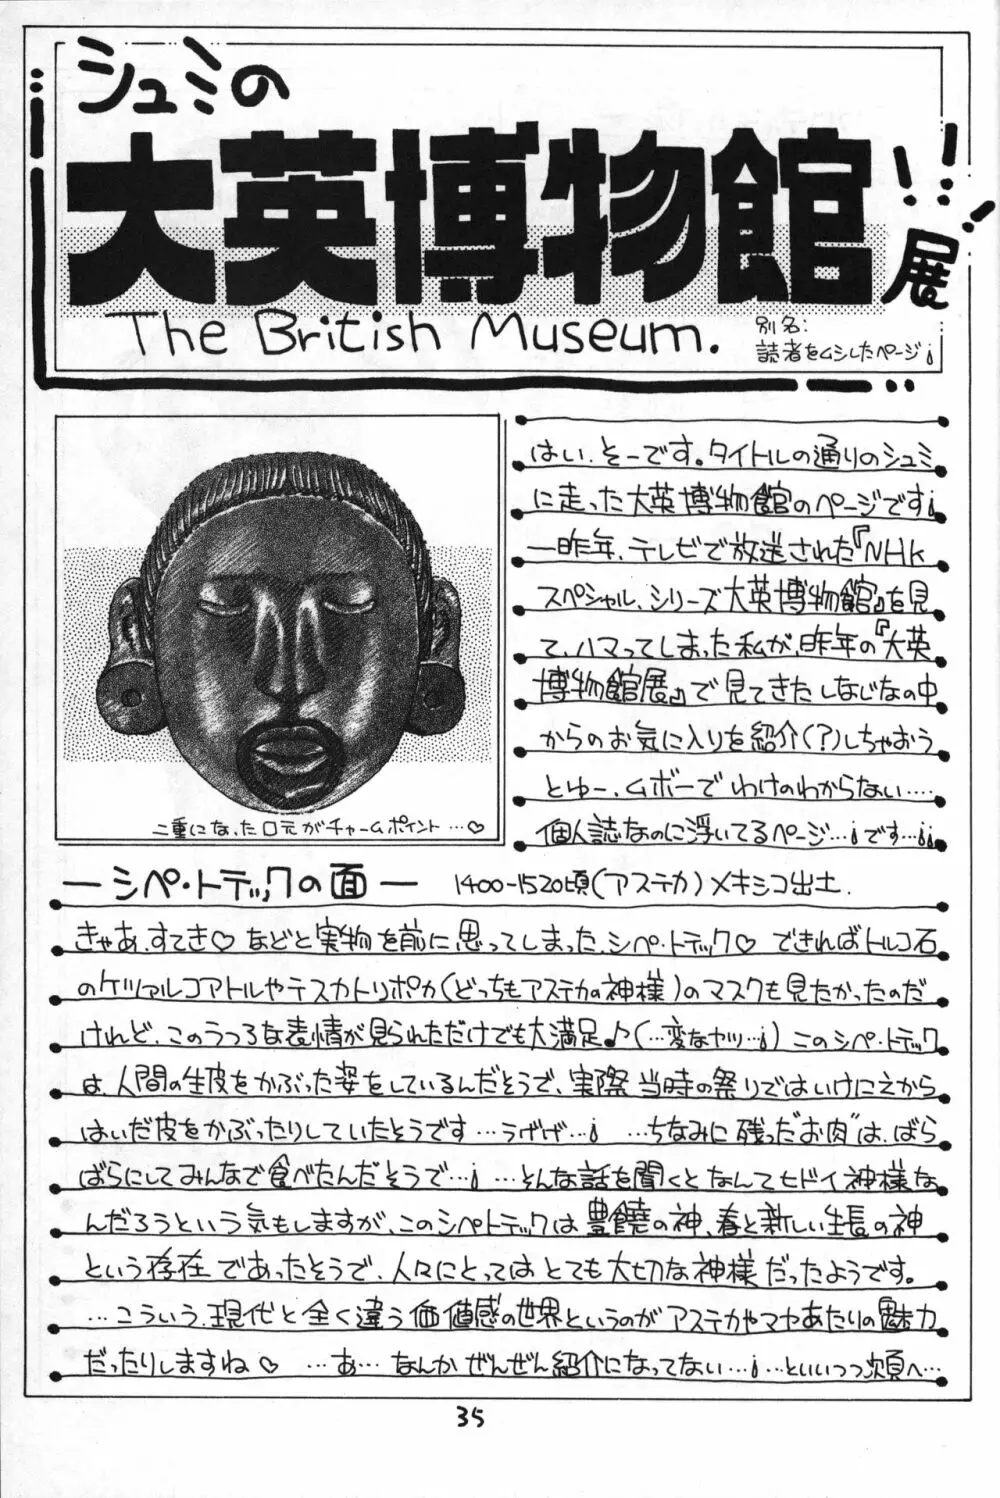 シュミの
大英博物館展
The British Museum.
別名:
読者をムシしたページ¡
はい、そーです。タイトルの通りのシュミ
に走った大英博物館のページです¡
一昨年、テレビで放送された『NHK
スペシャル、シリーズ大英博物館』を見
て、ハマってしまった私が、昨年の『大英
博物館展』で見てきたしなじなの中
からのお気に入りを紹介(?)しちゃおう
とゆー、ムボーでわけのわからない‥‥
個人誌なのに浮いてるページ…¡です…¡¡
二重になった口元がチャームポイント…♡
—シペ・トテックの面— 1400-1520頃(アステカ)メキシコ出土.
きゃあ、すてき♡などと実物を前に思ってしまった、シペ・トテック♡できればトルコ石
のケツァルコアトルやテスカトリポカ(どっちもアステカの神様)のマスクも見たかったのだ
けれど、このうつろな表情が見られただけでも大満足♪(…変なヤツ…¡)このシペ・トテック
は、人間の生皮をかぶった姿をしているんだそうで、実際当時の祭りではいけにえから
はいだ皮をかぶったりしていたそうです…うげげ…¡ …ちなみに残った"お肉"は、ばら
ばらにしてみんなで食べたんだそうで…¡ …そんな話を聞くとなんてヒドイ神様な
んだろうという気もしますが、このシペトテックは豊饒の神、春と新しい生長の神
という存在であったそうで、人々にとってはとても大切な神様だったようです。
…こういう、現代と全く違う価値感の世界というのがアステカやマヤあたりの魅力
だったりしますね♡ …あ…なんかぜんぜん紹介になってない…¡…といいつつ次頁へ…
35